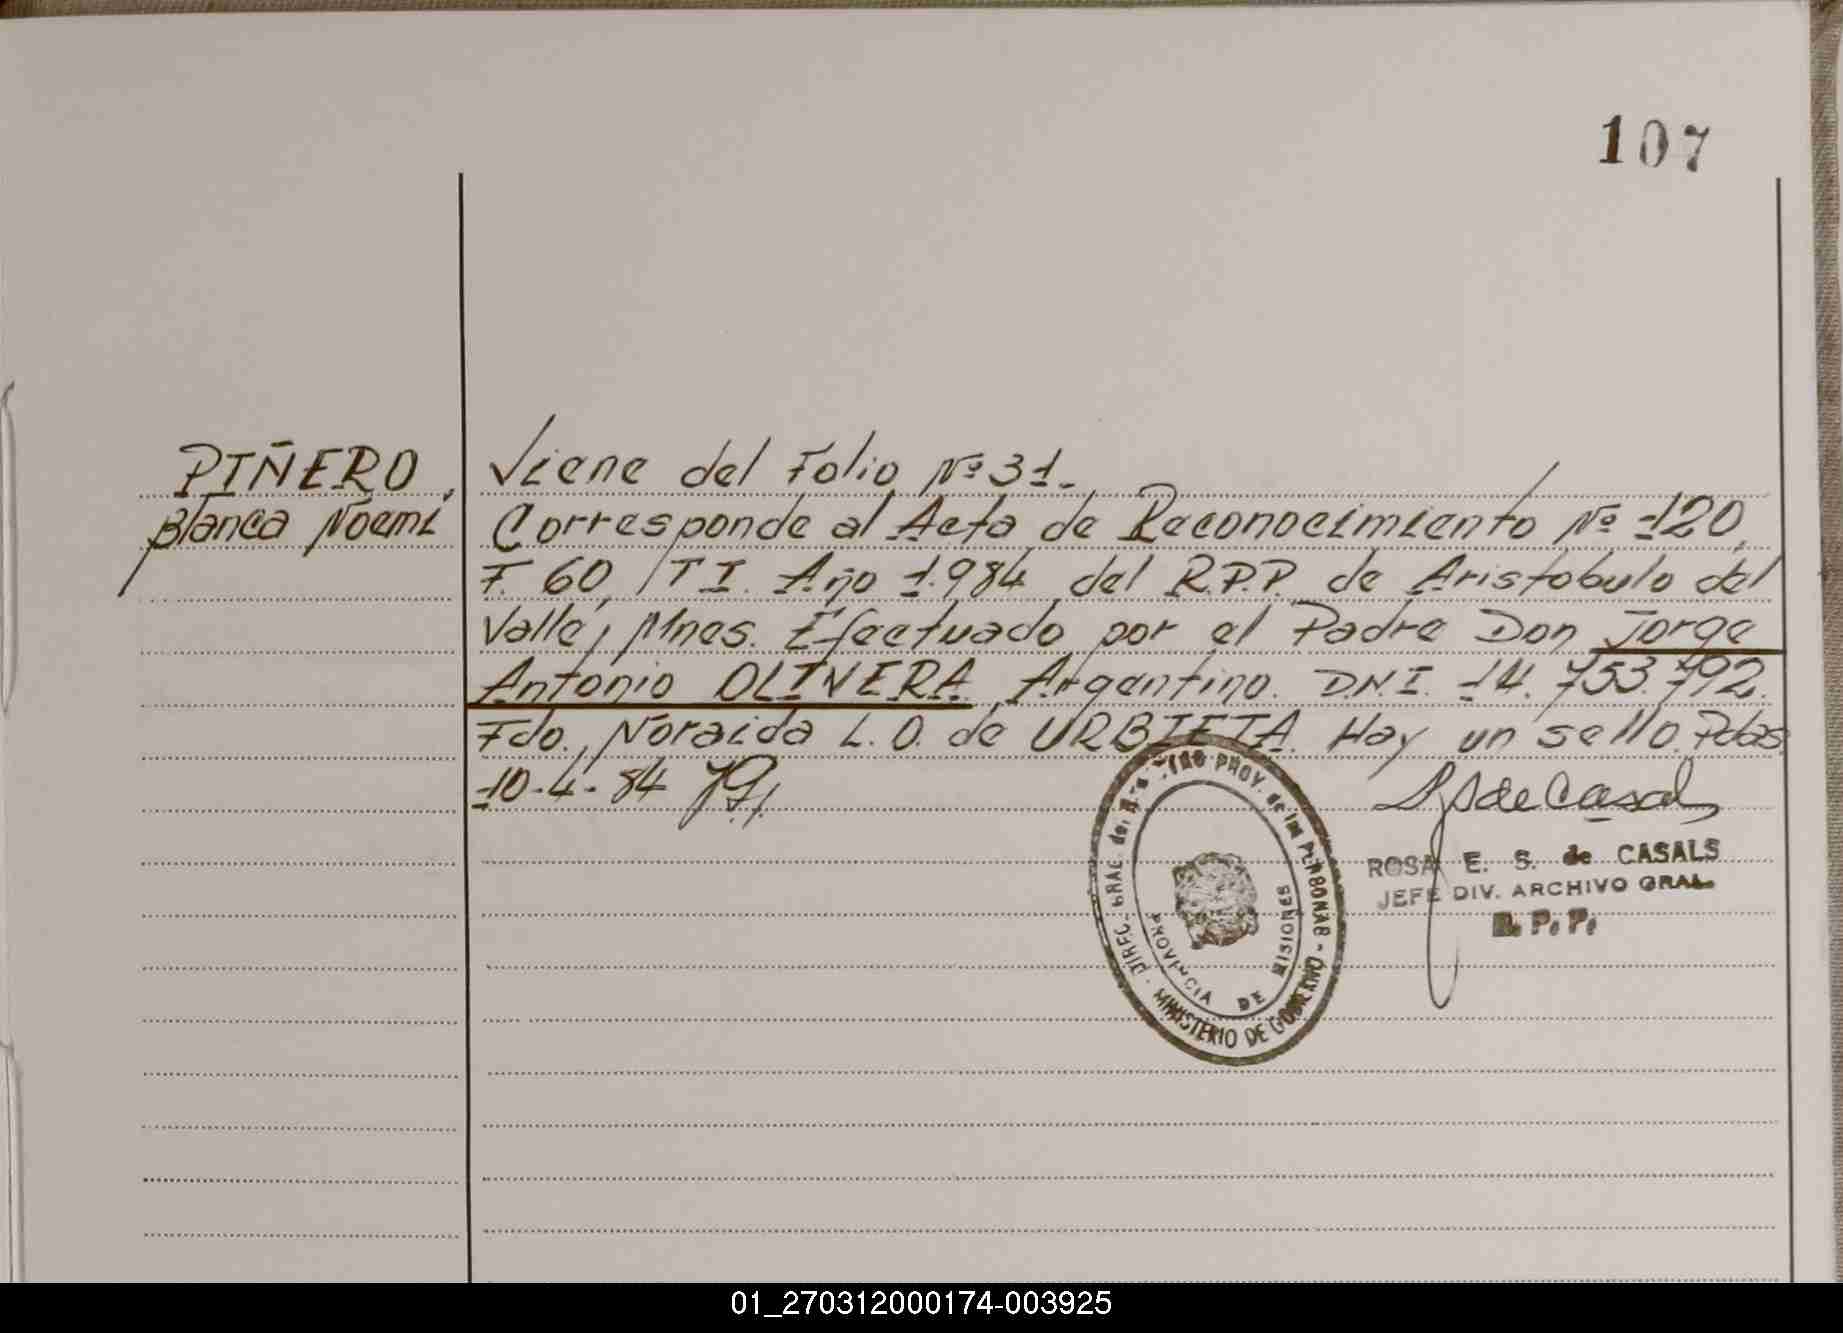 107
PIÑERO,
Blanca Noemí
Viene del Folio Nº 31.
Corresponde al Acta de Reconocimiento Nº 120,
F. 60, T I. Año 1.984 del R.P.P. de Aristobulo del
Valle, Mnes. Efectuado por el Padre Don Jorge
Antonio OLIVERA Argentino. D.N.I. 14.753.792.
Fdo., Noraida L. O. de URBIETA. Hay un sello. Pdas
10-4-84
DIREC. GRAL. del PROV. de las PERSONAS - MINISTERIO DE GOBIERNO
PROVINCIA DE MISIONES
de Casals
ROSA E. S. de CASALS
JEFE DIV. ARCHIVO GRAL.
R. P. P.
01_270312000174-003925